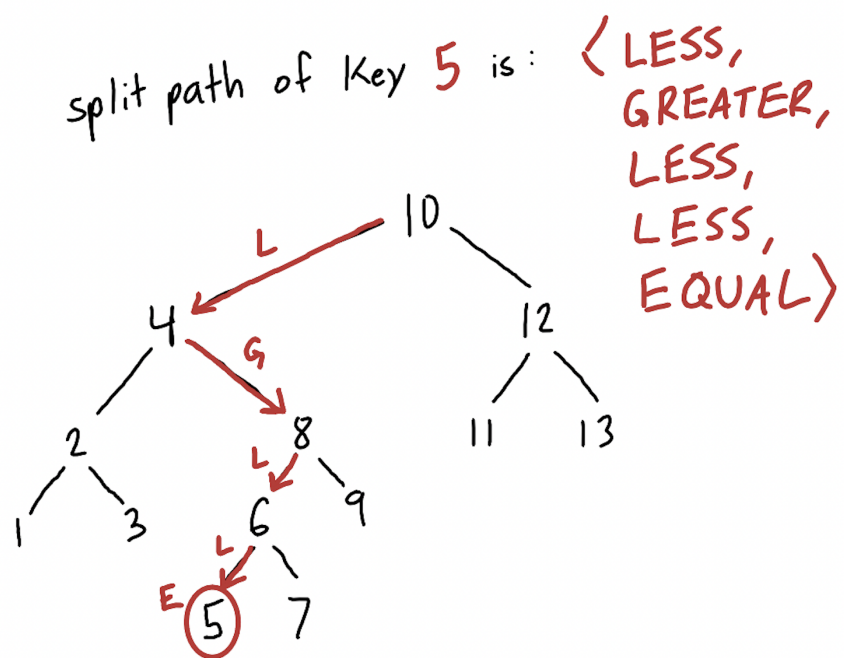 split path of key 5 is: ⟨LESS,
GREATER,
LESS,
LESS,
EQUAL⟩
10
L
4
12
G
2
8
11
13
L
1
3
6
9
L
E
5
7